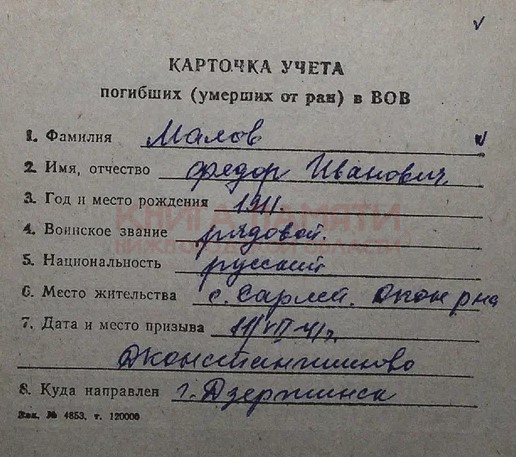 КАРТОЧКА УЧЕТА
погибших (умерших от ран) в ВОВ
1. Фамилия Малов
2. Имя, отчество Федор Иванович
3. Год и место рождения 1911.
КНИГА ПАМЯТИ
4. Воинское звание рядовой
НИЖЕГОРОДСКОЙ ОБЛАСТИ
5. Национальность русский
6. Место жительства с. Сарлей. р на
7. Дата и место призыва 11/VII-41г.
8. Куда направлен г. Дзержинск
Зак. № 4853. т. 120000